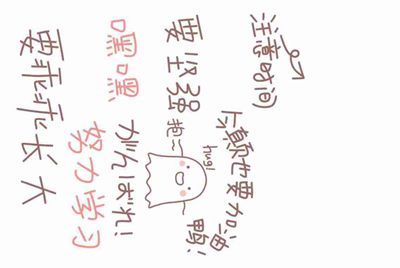 注意时间
也要加油鸭!
hug!
要坚强
抱~
嘿嘿
がんばれ!
努力学习
要乖乖长大